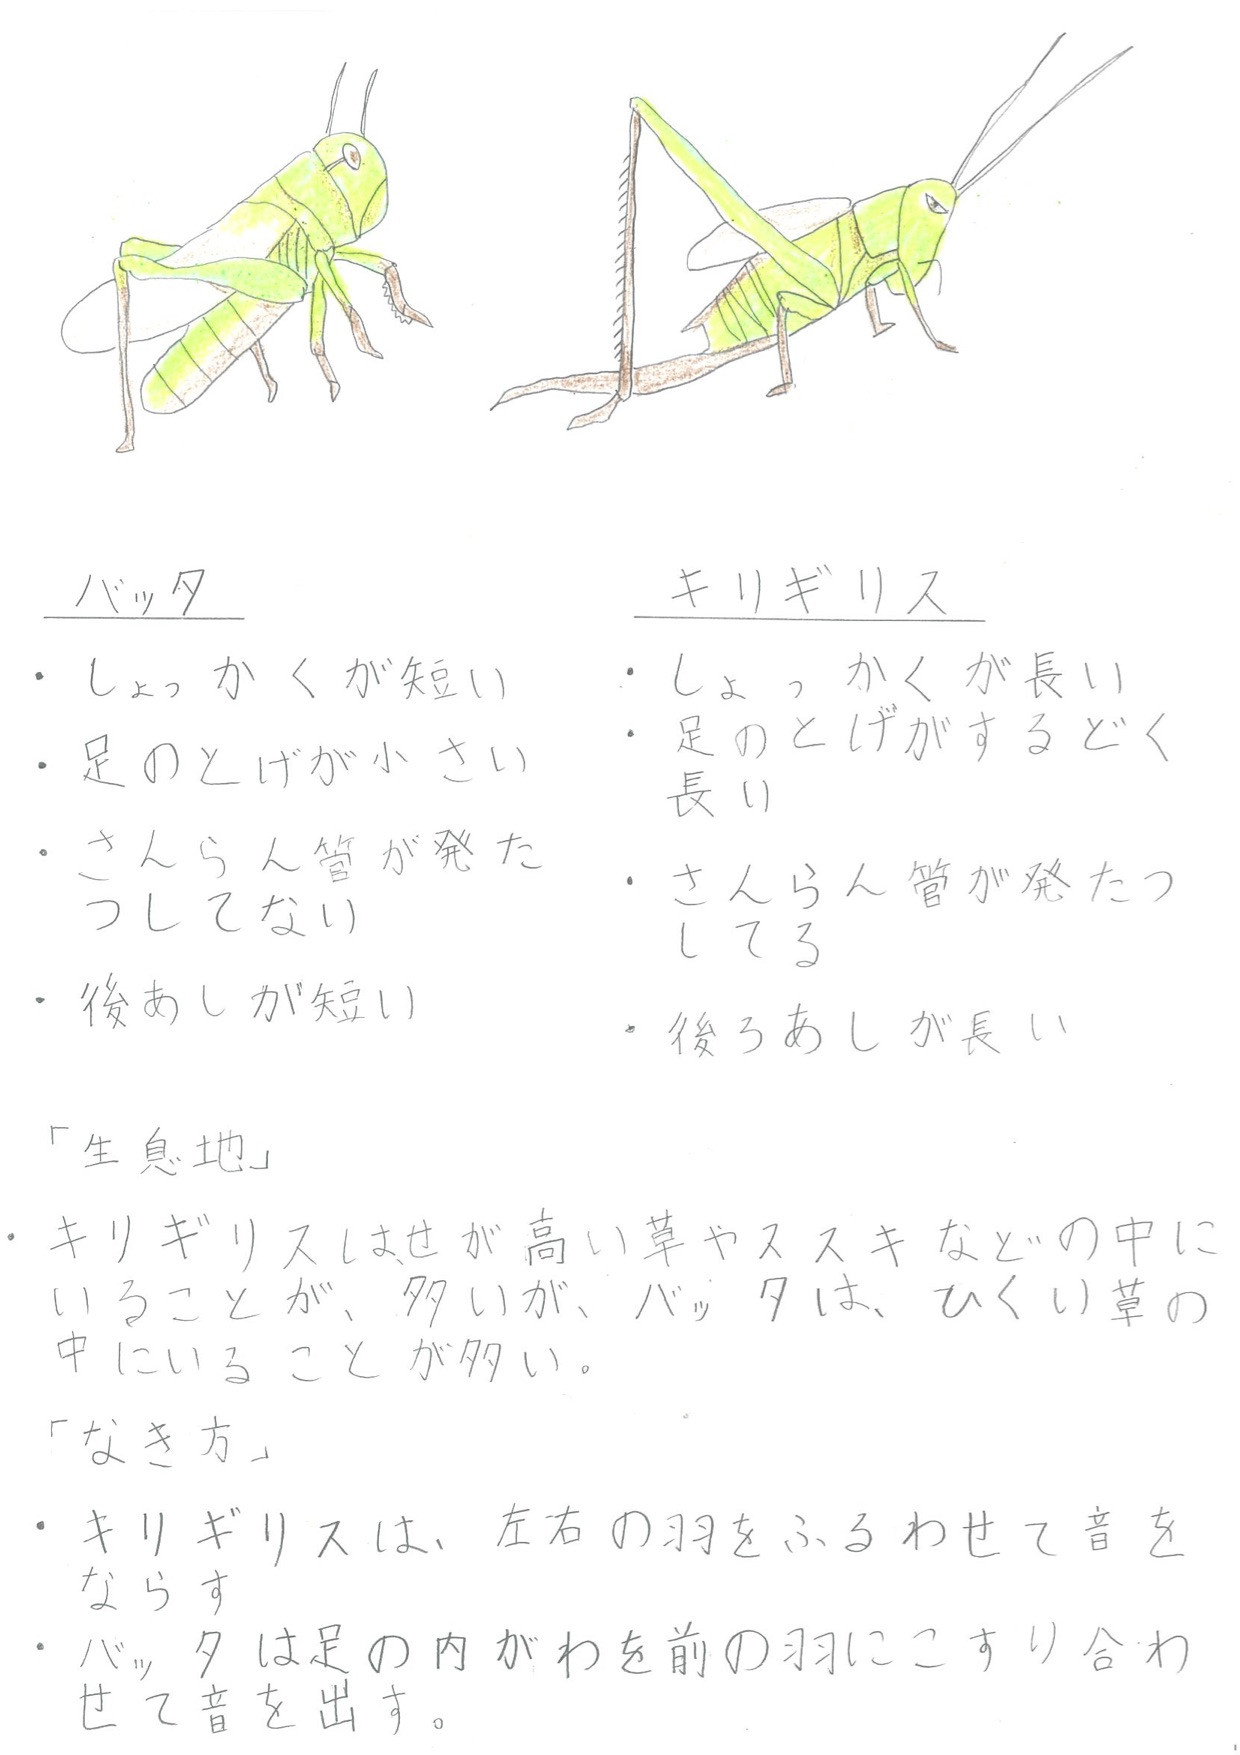 バッタ
・しょっかくが短い
・足のとげが小さい
・さんらん管が発た
つしてない
・後あしが短い
キリギリス
・しょっかくが長い
・足のとげがするどく
長い
・さんらん管が発たつ
してる
・後ろあしが長い
「生息地」
・キリギリスは、せが高い草やススキなどの中に
いることが、多いが、バッタは、ひくい草の
中にいることが多い。
「なき方」
・キリギリスは、左右の羽をふるわせて音を
ならす
・バッタは足の内がわを前の羽にこすり合わ
せて音を出す。